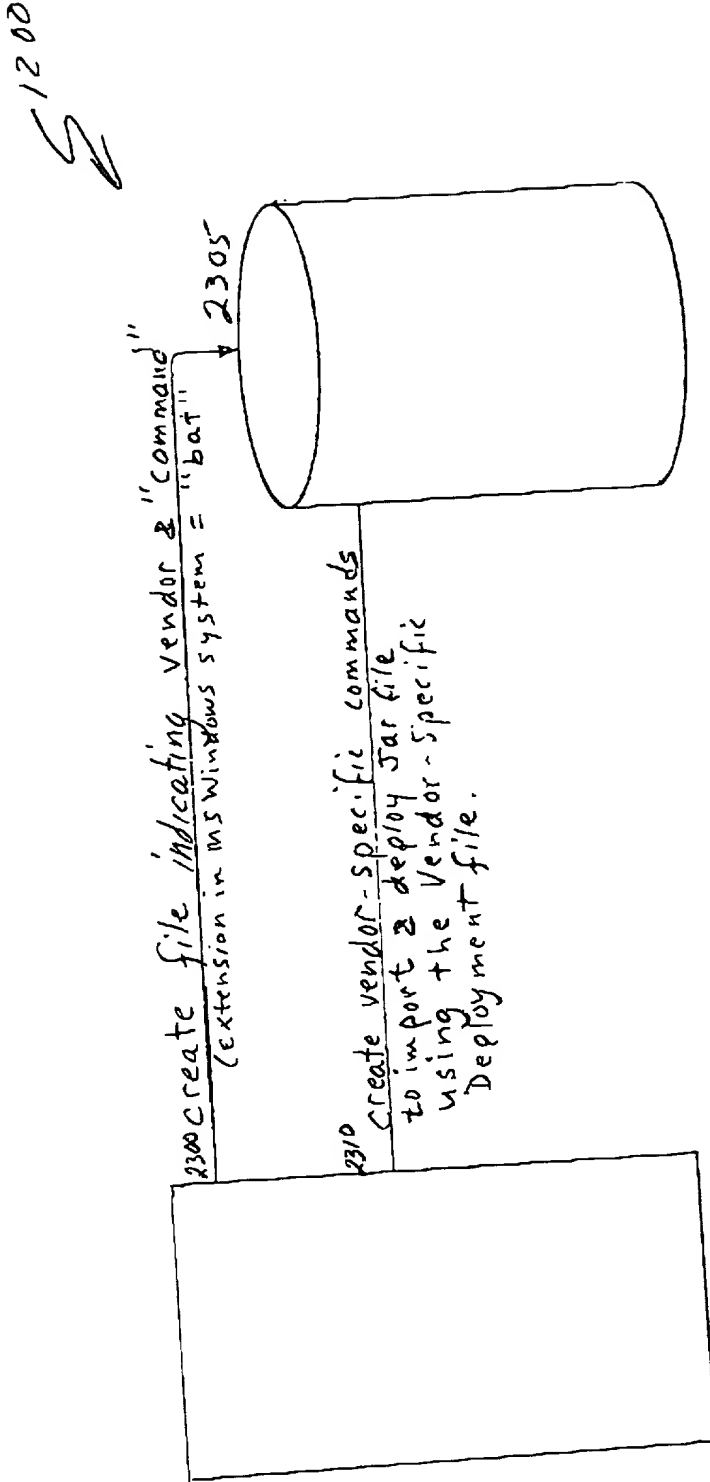 1200
2300 create file indicating vendor & "command"
(extension in MS Windows system = "bat")
2305
2310 create vendor-specific commands
to import & deploy Jar file
using the Vendor-Specific
Deployment file.